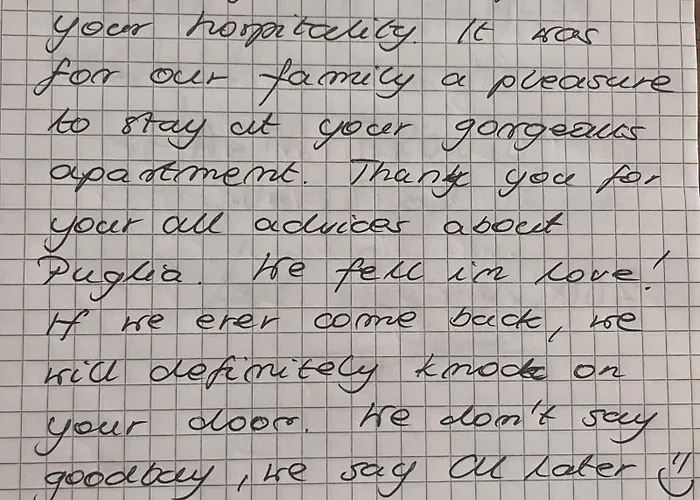 your hospitality. It was
for our family a pleasure
to stay at your gorgeous
apartment. Thank you for
your all advices about
Puglia. We fell in love!
If we ever come back, we
will definitely knock on
your door. We don't say
goodbay, we say CU later